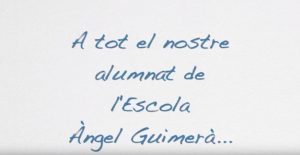 A tot el nostre
alumnat de
l'Escola
Àngel Guimerà...